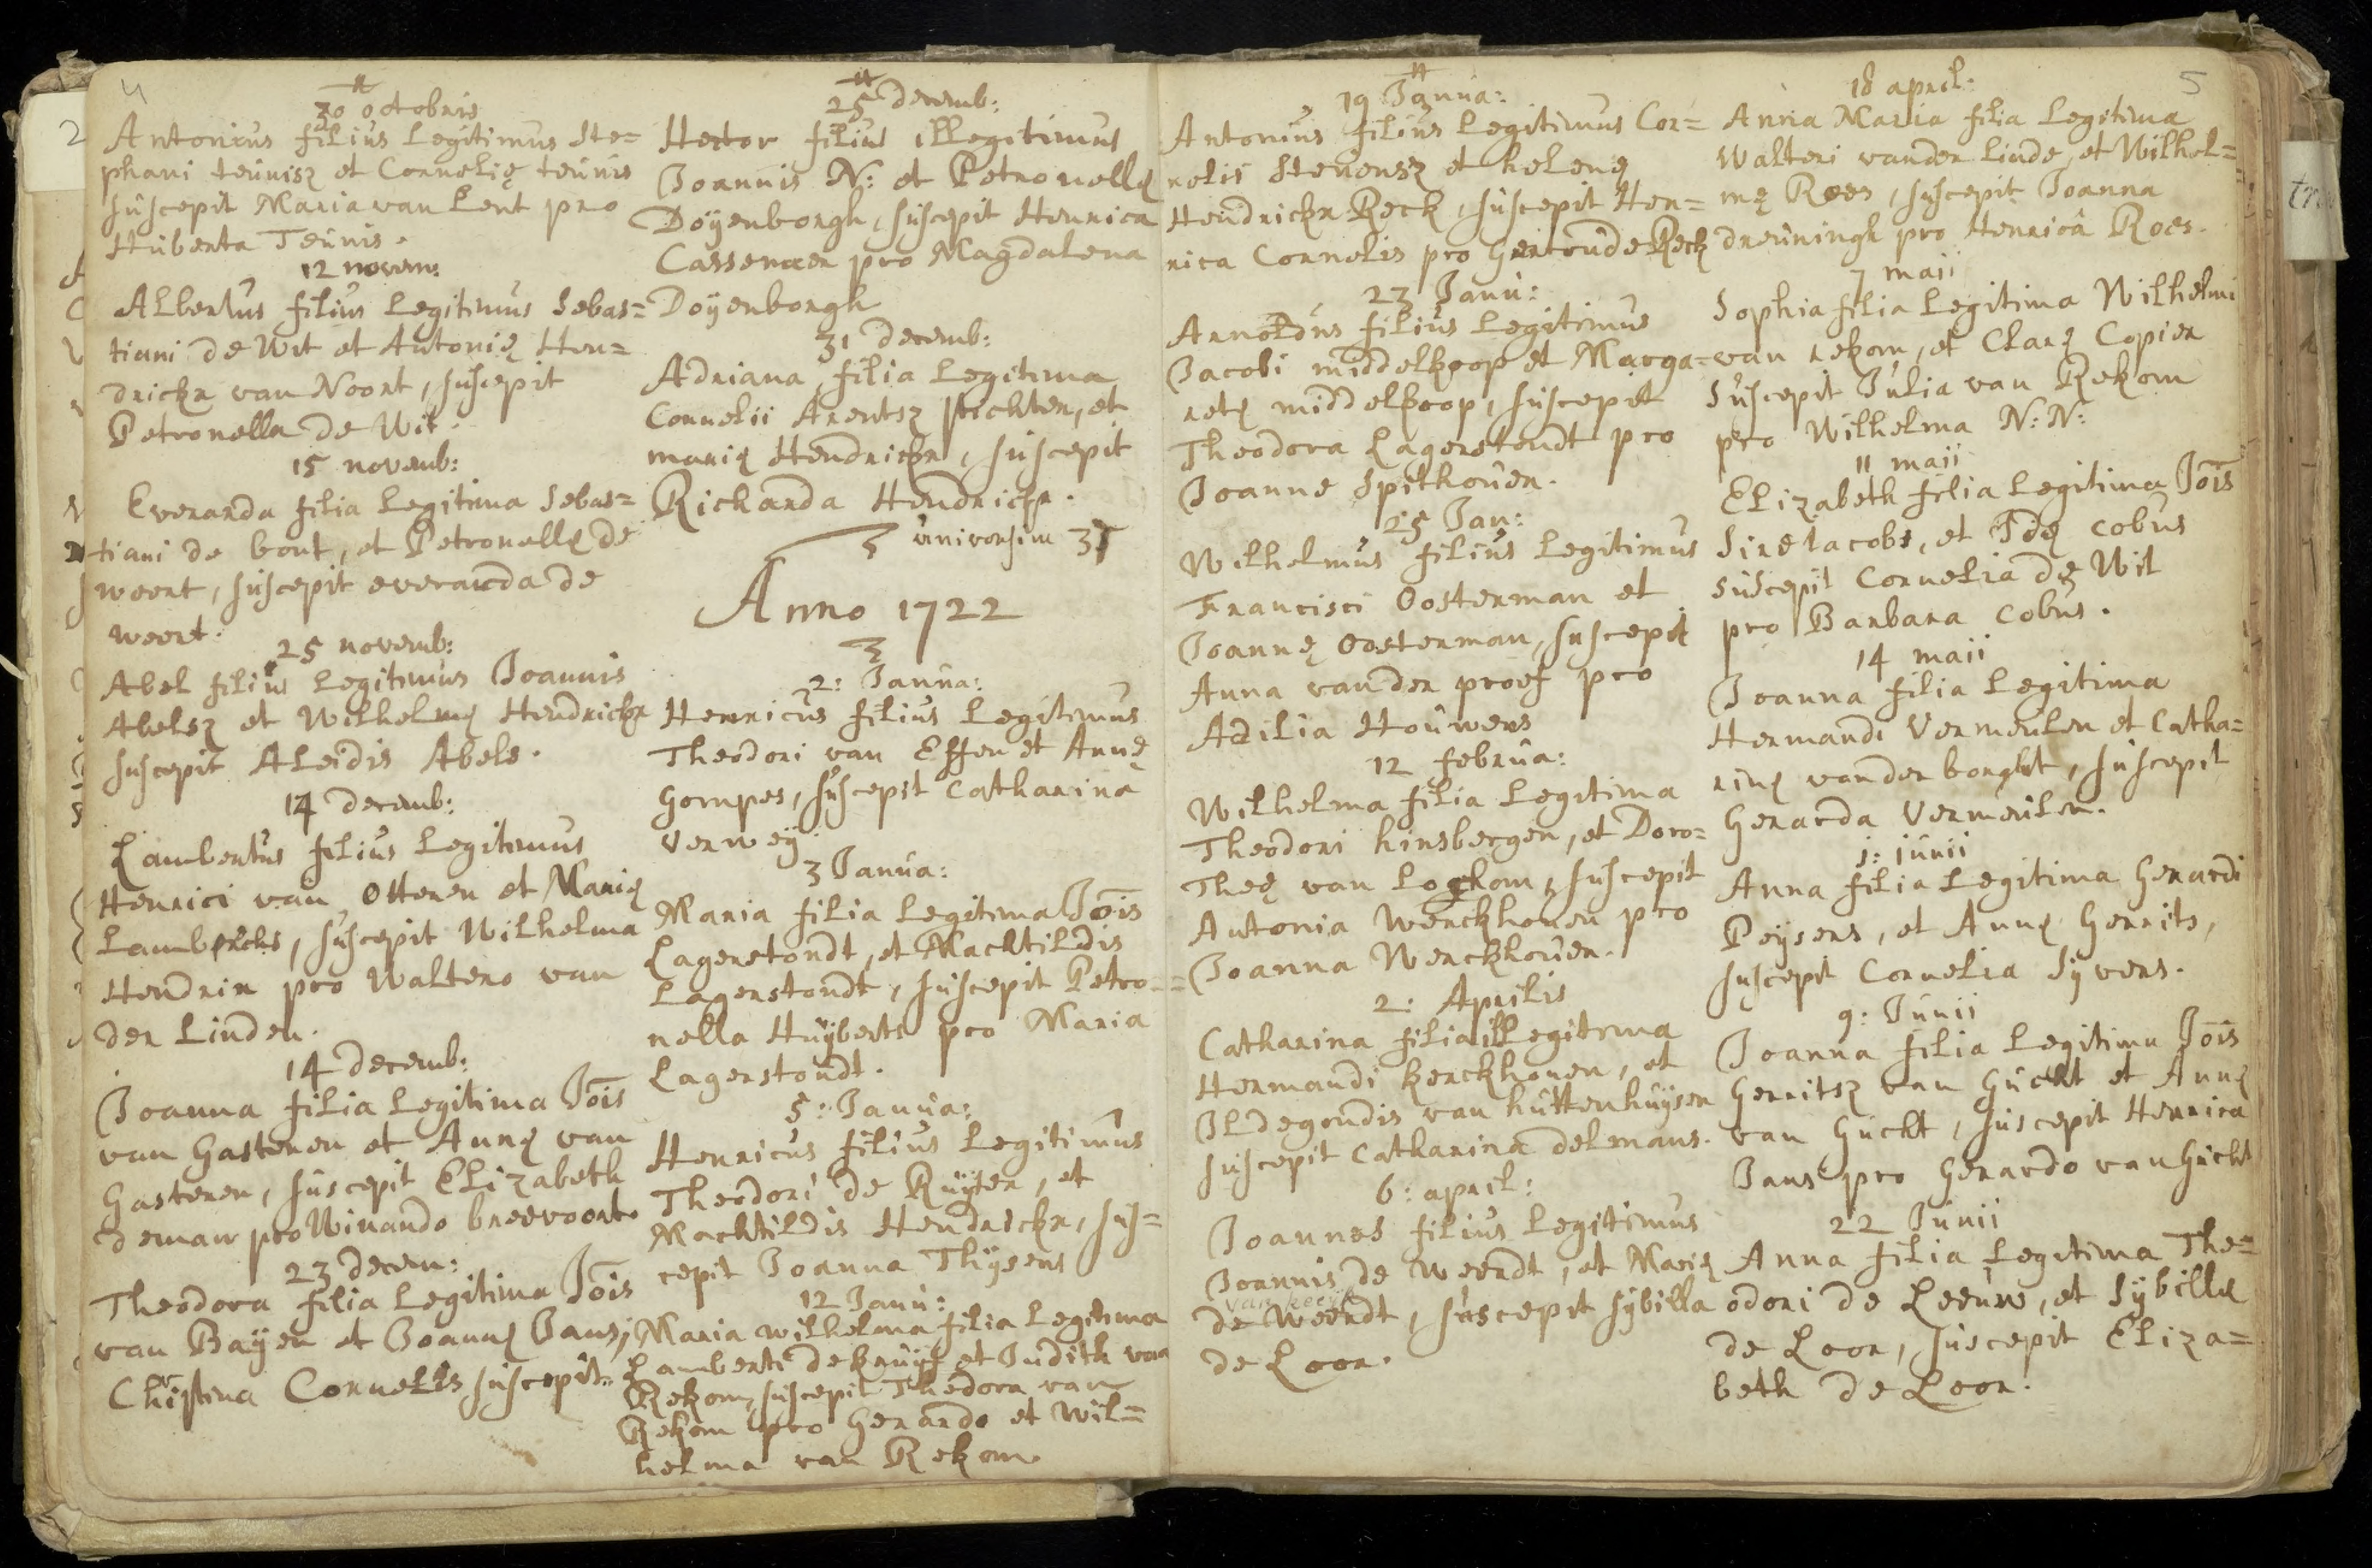 4
30 octobris
Antonius filius Legitimus Ste=
phani teunisz et Cornelię teunis
suscepit Maria van Lent pro
Huberta Teunis.
12 novem:
Albertus filius Legitimus Sebas=
tiani de Wit et Antonię Hen=
dricks van Noort, suscepit
Petronella de Wit.
15 novemb:
Everarda filia Legitima Sebas=
tiani de bont, et Petronellę de
weert, suscepit everarda de
weert.
25 novemb:
Abel filius Legitimus Joannis
Abelsz et Wilhelmę Hendrickx
suscepit Aleidis Abels.
14 decemb:
Lambertus filius Legitimus
Henrici van Otteren et Marię
Lamberts, suscepit Wilhelma
Hendrix pro Waltero van
der Linden.
14 decemb:
Joanna filia Legitima Jois
van Gasteren et Annę van
Gasteren, suscepit Elizabeth
deman pro Winando breevoort.
23 decem:
Theodora filia Legitima Jois
van Bayen et Joannę Jans,
Christina Cornelis suscepit.
25 decemb:
Hector filius illegitimus
Joannis N: et Petronellę
Doÿenborgh, suscepit Henrica
Cassenaer pro Magdalena
Doÿenborgh
31 decemb:
Adriana filia Legitima
Cornelii Arentsz stichter, et
marię Hendrickx, suscepit
Richarda Hendrickx.
universim 37
Anno 1722
2: Janua:
Henricus filius Legitimus
Theodori van Essen et Annę
Gompes, suscepit Catharina
Verweÿ
3 Janua:
Maria filia Legitima Jois
Lagerstondt, et Machtildis
Lagerstondt, suscepit Petro=
nella Huÿberts pro Maria
Lagerstondt.
5: Janua:
Henricus filius Legitimus
Theodori de Ruÿter, et
Machtildis Hendrickx, sus=
cepit Joanna Thÿsens
12 Janu:
Maria wilhelma filia Legitima
Lamberti de kruÿf et Judith van
Rekom, suscepit Theodora van
Rekom pro Gerardo et Wil=
helma van Rekom.
19 Janua:
Antonius filius Legitimus Cor=
nelis Stevensz et helenę
Hendrickx Reck, suscepit Hen=
rica Cornelis pro Gertoude Reck
23 Janu:
Arnoldus filius Legitimus
Jacobi middelkoop et Marga=
retę middelkoop, suscepit
Theodora Lagerstondt pro
Joanne Spithoven.
25 Jan:
Wilhelmus filius Legitimus
Francisci Oosterman et
Joannę Oosterman, suscepit
Anna vander proef pro
Adilia Houwens
12 februa:
Wilhelma filia Legitima
Theodori hinsbergen, et Doro=
Theę van Lockom, suscepit
Antonia Werckhoven pro
Joanna Werckhoven.
2: Aprilis
Catharina filia illegitima
Hermandi kerckhoven, et
Ildegondis van huttenhuÿsen
suscepit Catharina delmans.
6: april:
Joannes filius Legitimus
Joannis de weerdt, et Marię
de weerdt, suscepit sÿbilla
de Loor.
5
18 april:
Anna Maria filia Legitima
Walteri vander Linde, et Wilhel=
mę Roes, suscepit Joanna
dreuningh pro Henrica Roes.
7 maii
Sophia filia Legitima Wilhelmi
van rekom, et Clarę Copier
suscepit Julia van Rekom
pro Wilhelma N: N:
11 maii
Elizabeth filia Legitima Jois
Sire Jacobs, et Idę Cobus
suscepit Cornelia de Wit
pro Barbara Cobus.
14 maii
Joanna filia Legitima
Hermandi Vermeulen et Catha=
rinę vander borght, suscepit
Gerarda Vermeulen.
1: junii
Anna filia Legitima Gerardi
Peÿsers, et Annę Gerrits,
suscepit Cornelia Sÿvers.
9: Junii
Joanna filia Legitima Jois
Gerritsz van Gucht et Annę
van Gucht, suscepit Henrica
Jans pro Gerardo van Gucht
22 Junii
Anna filia Legitima The=
odori de Leeuw, et Sÿbillę
de Loor, suscepit Eliza=
beth de Loor.